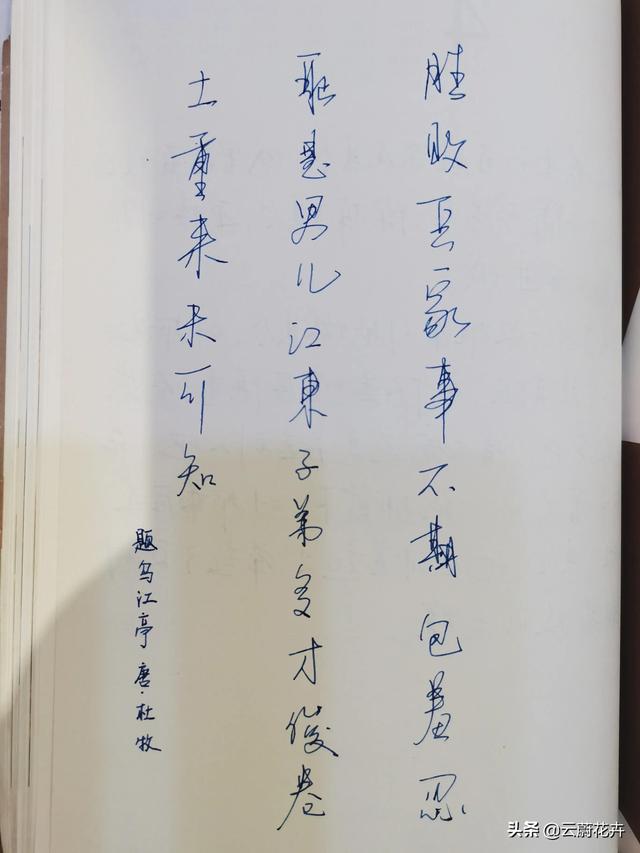 胜败兵家事不期包羞忍
耻是男儿江東子弟多才俊卷
土重来未可知
题乌江亭 唐·杜牧
头条 @云蔚花卉